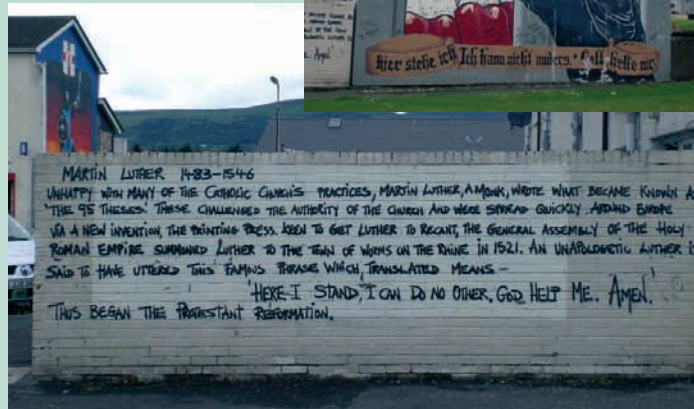 hier stehe ich Ich kann nicht anders. Gott helfe mir
MARTIN LUTHER 1483-1546
UNHAPPY WITH MANY OF THE CATHOLIC CHURCH'S PRACTICES, MARTIN LUTHER, A MONK, WROTE WHAT BECAME KNOWN AS
'THE 95 THESES.' THESE CHALLENGED THE AUTHORITY OF THE CHURCH AND WERE SPREAD QUICKLY AROUND EUROPE
VIA A NEW INVENTION, THE PRINTING PRESS. KEEN TO GET LUTHER TO RECANT, THE GENERAL ASSEMBLY OF THE HOLY
ROMAN EMPIRE SUMMONED LUTHER TO THE TOWN OF WORMS ON THE RHINE IN 1521. AN UNAPOLOGETIC LUTHER IS
SAID TO HAVE UTTERED THIS FAMOUS PHRASE WHICH, TRANSLATED MEANS -
'HERE I STAND, I CAN DO NO OTHER, GOD HELP ME. AMEN.'
THUS BEGAN THE PROTESTANT REFORMATION.